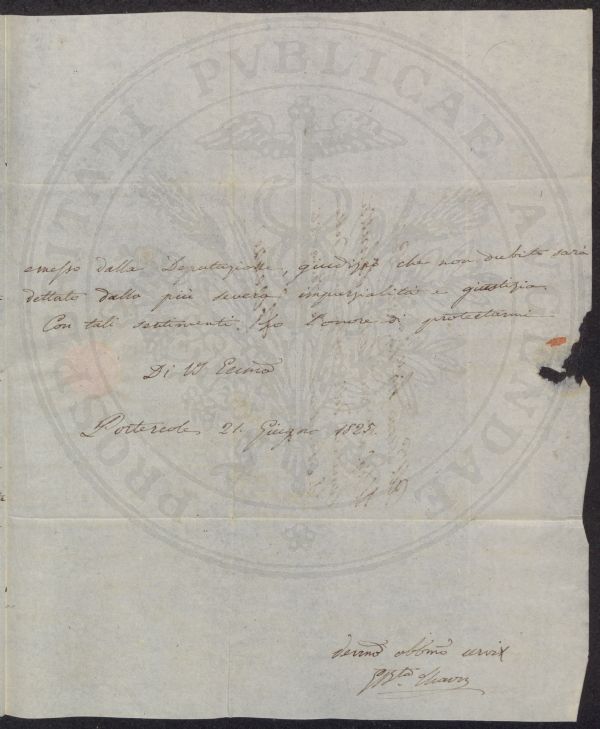 PROSPERITATI PVBLICAE AVGENDAE
emesso dalla Deputazione, giudizio che non dubito sarà
dettato dalla più severa imparzialità e giustizia
Con tali sentimenti ho l'onore di protestarmi
Di VS Eccmã
Portercole 21. Giugno 1825.
Devmõ obbmõ servit